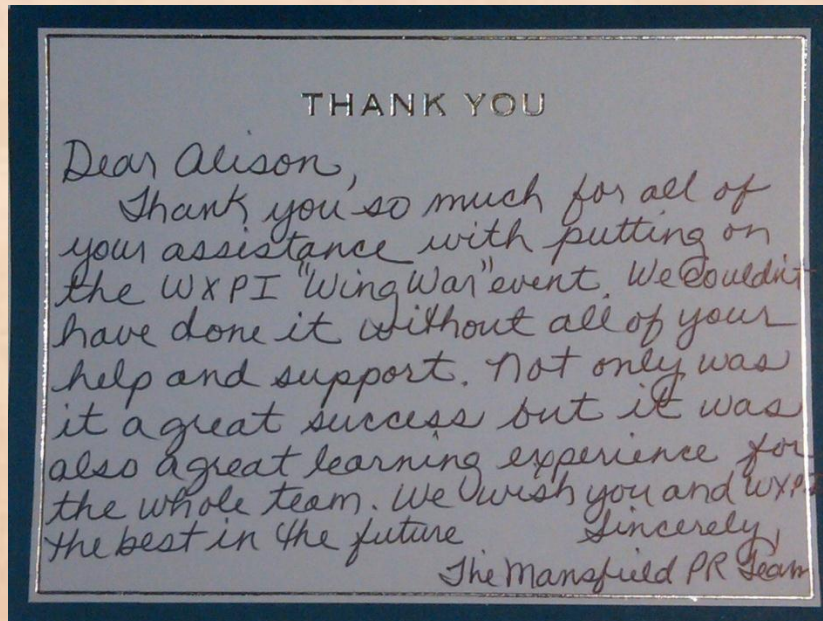 THANK YOU
Dear Alison,
Thank you so much for all of
your assistance with putting on
the WXPI "Wing War" event. We couldn't
have done it without all of your
help and support. Not only was
it a great success but it was
also a great learning experience for
the whole team. We wish you and WXPI
the best in the future Sincerely,
The Mansfield PR Team